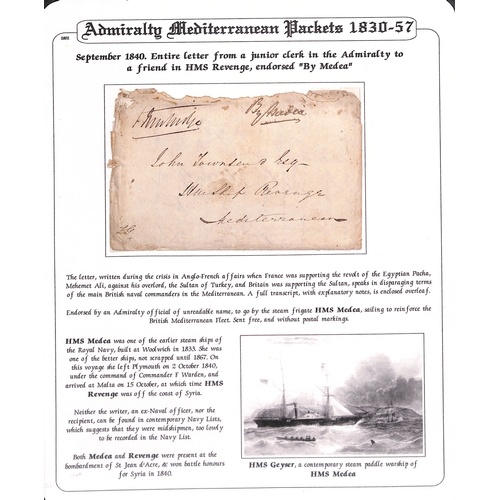 Admiralty Mediterranean Packets 1830-57
September 1840. Entire letter from a junior clerk in the Admiralty to
a friend in HMS Revenge, endorsed "By Medea"
By Medea
John Townsend Esq
HM Ship Revenge
Mediterranean
The letter, written during the crisis in Anglo-French affairs when France was supporting the revolt of the Egyptian Pacha,
Mehemet Ali, against his overlord, the Sultan of Turkey, and Britain was supporting the Sultan, speaks in disparaging terms
of the main British naval commanders in the Mediterranean. A full transcript, with explanatory notes, is enclosed overleaf.
Endorsed by an Admiralty official of unreadable name, to go by the steam frigate HMS Medea, sailing to reinforce the
British Mediterranean Fleet. Sent free, and without postal markings.
HMS Medea was one of the earlier steam ships of
the Royal Navy, built at Woolwich in 1833. She was
one of the better ships, not scrapped until 1867. On
this voyage she left Plymouth on 2 October 1840,
under the command of Commander F Warden, and
arrived at Malta on 15 October, at which time HMS
Revenge was off the coast of Syria.
Neither the writer, an ex-Naval officer, nor the
recipient, can be found in contemporary Navy Lists,
which suggests that they were midshipmen, too lowly
to be recorded in the Navy List.
Both Medea and Revenge were present at the
bombardment of St Jean d'Acre, & won battle honours
for Syria in 1840.
HMS Geyser, a contemporary steam paddle warship of
HMS Medea